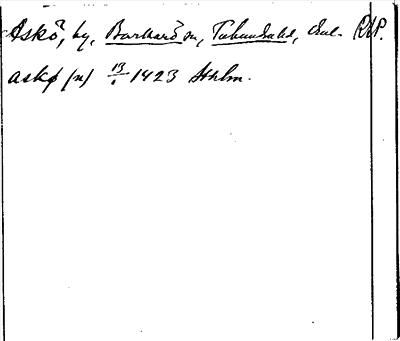 Askö, by, Barkarö sn, Tuhundra hd, Vml. RAP.
askø (n) 13/1 1423 Sthlm.